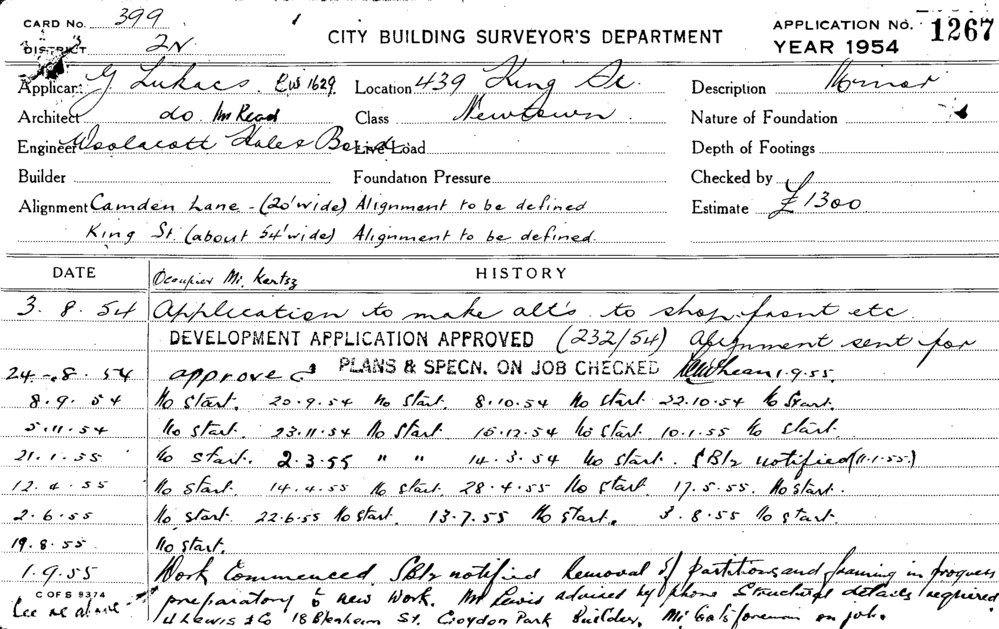 CARD NO. 399
DISTRICT 2N
CITY BUILDING SURVEYOR'S DEPARTMENT
APPLICATION NO. 1267
YEAR 1954
Applicant G Lukacs. EW 1629. Location 439 King St. Description Minor
Architect do Mr Read Class Newtown Nature of Foundation
Engineer Woolacott Hales Bond Live Load Depth of Footings
Builder Foundation Pressure Checked by
Alignment Camden Lane - (20' wide) Alignment to be defined Estimate £1300
King St. (about 54' wide) Alignment to be defined.
DATE Occupier Mr. Kertsz HISTORY
3. 8. 54 Application to make alt's to shop front etc
DEVELOPMENT APPLICATION APPROVED (232/54) Alignment sent for
24. 8. 54 approved PLANS & SPECN. ON JOB CHECKED 1.9.55.
8. 9. 54 No start. 20.9.54 No start. 8.10.54 No start 22.10.54 No start.
5.11.54 No start. 23.11.54 No start 15.12.54 No start 10.1.55 No start.
21. 1. 55 No start. 2.3.55 " " 14.3.54 No start. SBI2 notified (11.1.55.)
12. 4. 55 No start. 14.4.55 No start. 28.4.55 No start. 17.5.55. No start.
2. 6. 55 No start. 22.6.55 No start. 13.7.55 No start. 3.8.55 No start.
19. 8. 55 No start.
1. 9. 55 Work Commenced. SBI2 notified Removal of partitions and framing in progress
C OF S 9374
preparatory to new work. Mr Lewis advised by phone Structural details required.
See as above - J Lewis & Co 18 Blenheim St. Croydon Park Builder. Mr foreman on job.